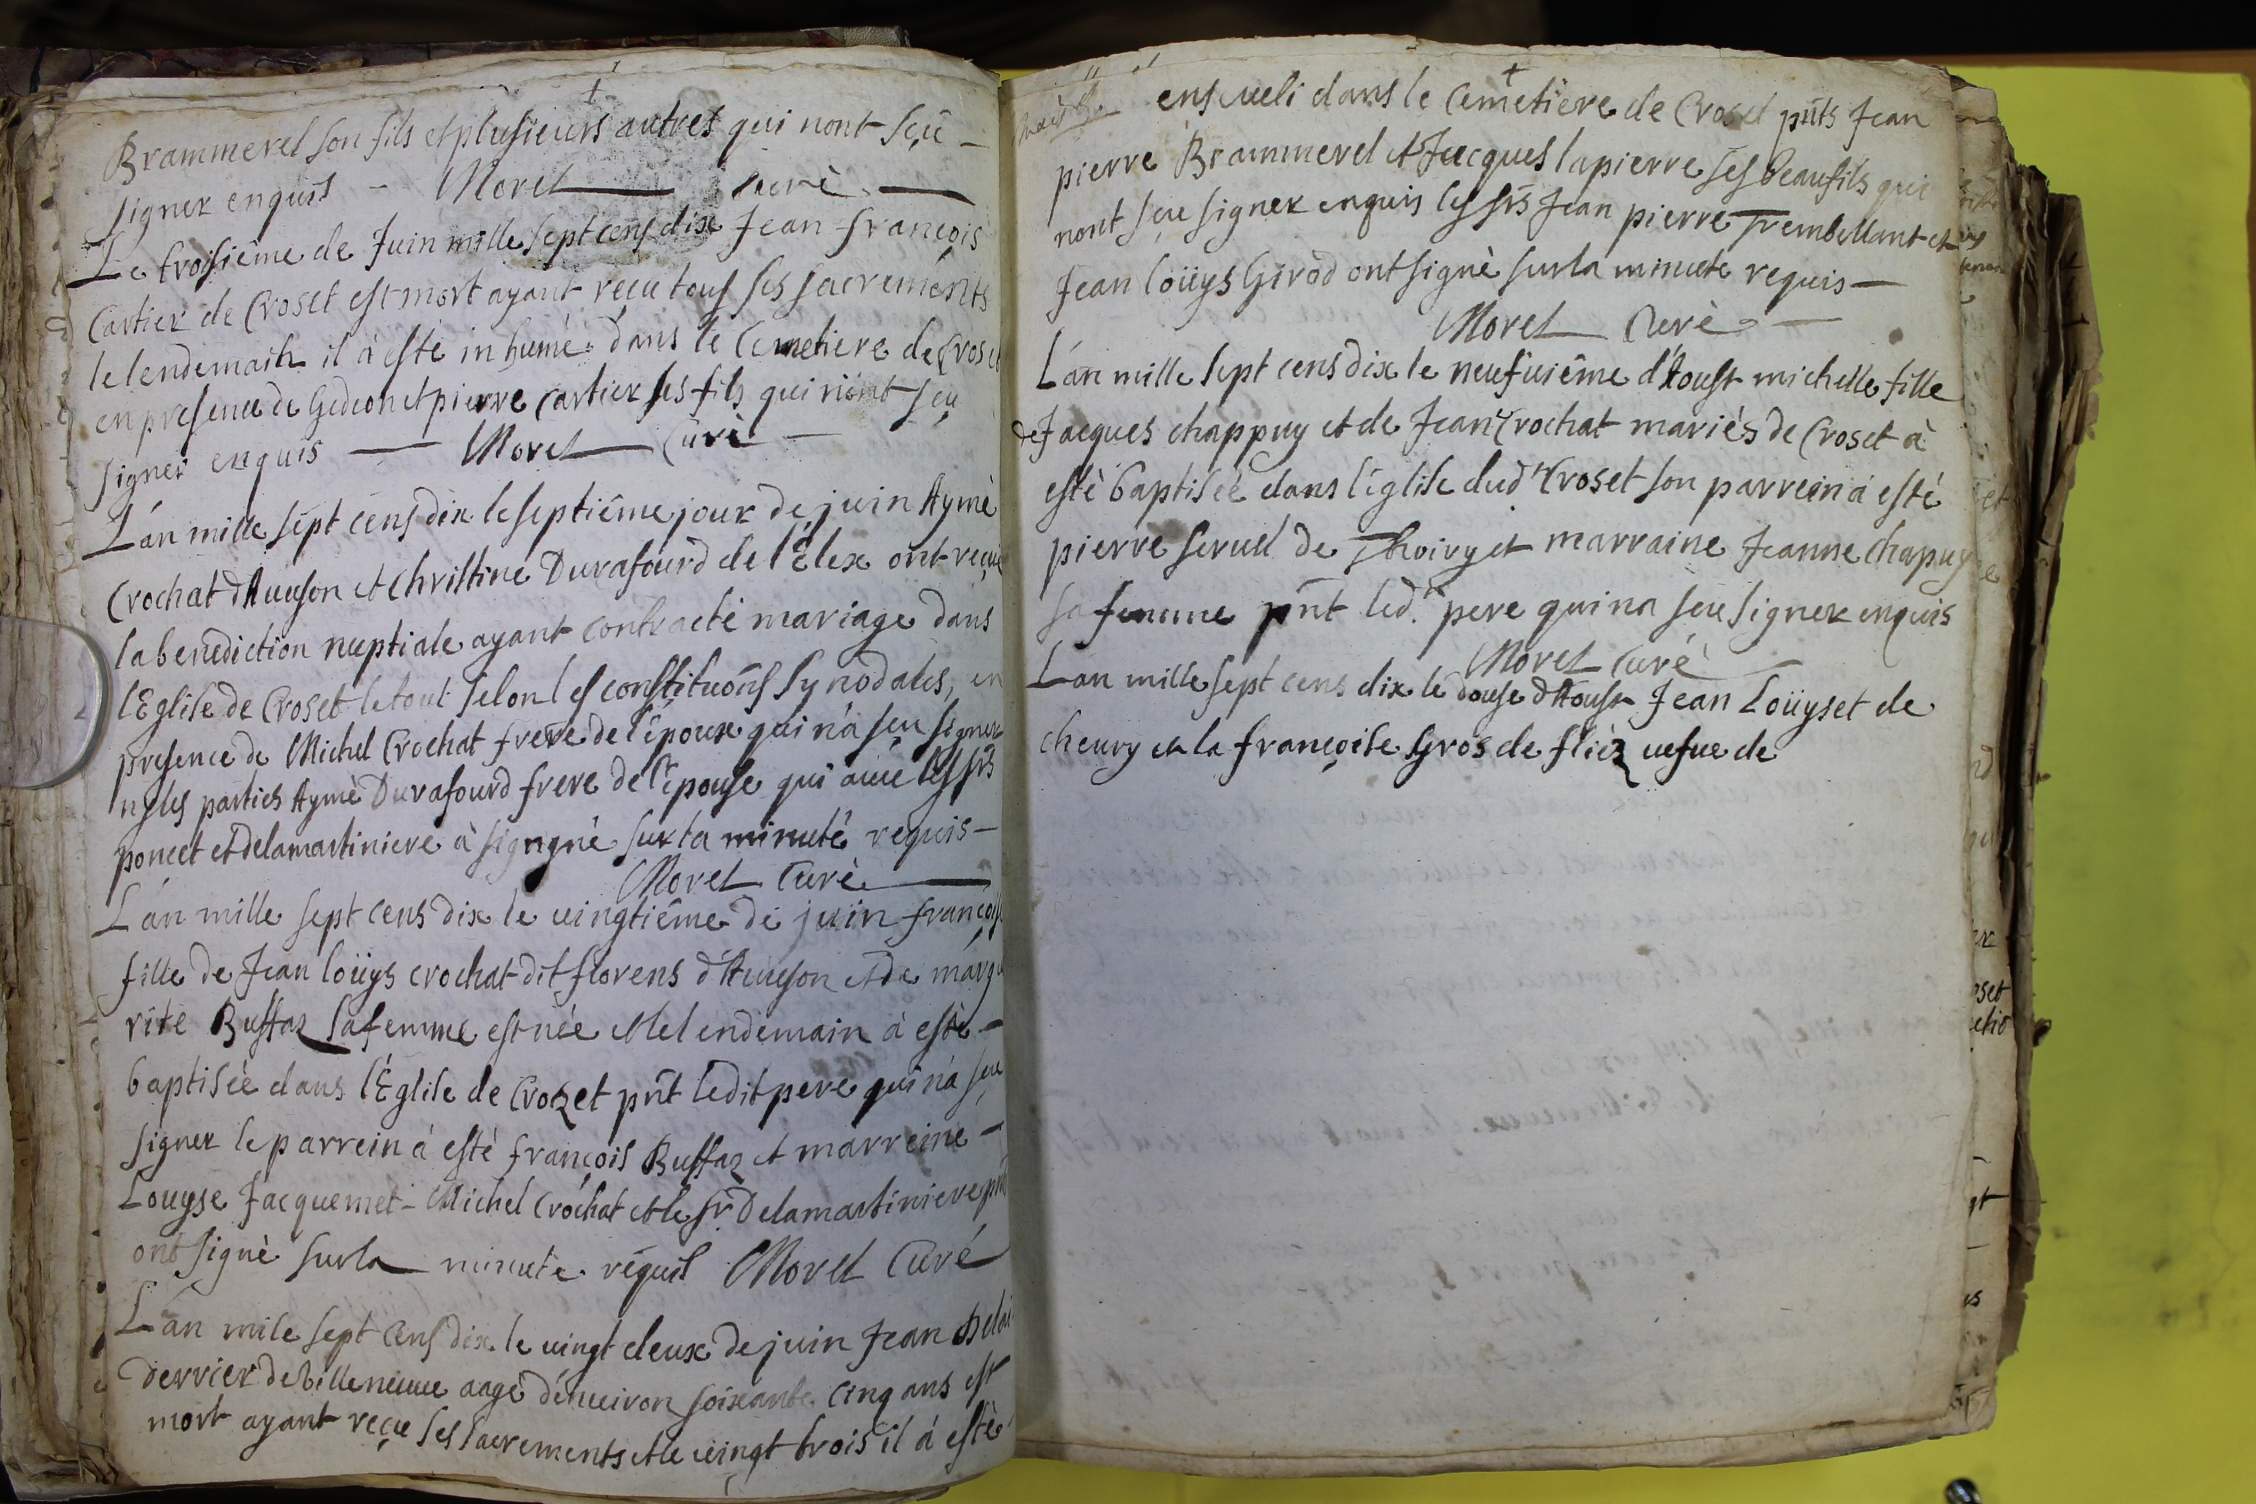 Brammerel son fils et plusieurs autres qui nont sçeu
signer enquis - Morel curè
Le troisiême de Juin mille sept cens dix Jean françois
Cartier de Croset est mort ayant reçeu tous ses sacrements
le lendemain il à esté inhumé dans le Cemetiere de Croset
en presence de Gedeon et pierre Cartier ses fils qui n'ont sçeu
signer enquis Morel Curè
L'an mille sept cens dix le septiême jour de juin Aymè
Crochat d'Auuson et Christine Durafourd de l'Elex ont reçeu
la benediction nuptiale ayant contracté mariage dans
l'Eglise de Croset le tout selon les constituõns synodales, en
presence de Michel Crochat frere de l'époux qui n'a sçeu signer
parties Aymè Durafourd frere de l'epouse qui auec les srs
poncet et delamartiniere à signgnè sur la minutè requis -
Morel Curè
L'an mille sept cens dix le uingtiême de juin françois
fille de Jean loüys crochat dit florens d'Auuson et de margu
rite Buffaz sa femme est née et le lendemain à estè -
baptisée dans l'Église de Crozet pñt ledit pere qui n'a sçeu
signer le parrein à estè françois Buffaz et marreine -
Louyse Jacquemet - Michel Crochat et le sr Delamartiniere pñt
ont signè sur la minute requis Morel Curé
L'an mile sept cens dix le uingt deux de juin Jean
derrier de Villeneuue aagè d'enuiron soixante cinq ans est
mort ayant reçeu ses sacrements et le uingt trois il à estè
enseueli dans le Cemetiere de Croset pñts Jean
pierre Brammerel et Jacques lapierre ses beaufils qui
nont sçeu signer enquis les srs Jean pierre Trembellant et
Jean loüys Girod ont signè sur la minute requis -
Morel Curè
L'an mille sept cens dix le neufuiême d'Aoust michelle fille
de Jacques chappuy et de Jean Crochat mariés de Croset à
estè baptisée dans l'église dud.t Croset son parrein à estè
pierre seruel de Thoiry et marraine Jeanne Chapuy
sa femme pñt led.t pere qui na sçeu signer enquis
Morel Curé
L'an mille sept cens dix le douse d'Aoust Jean Loüyset de
cheury et la françoise Gros de fliez uefue de